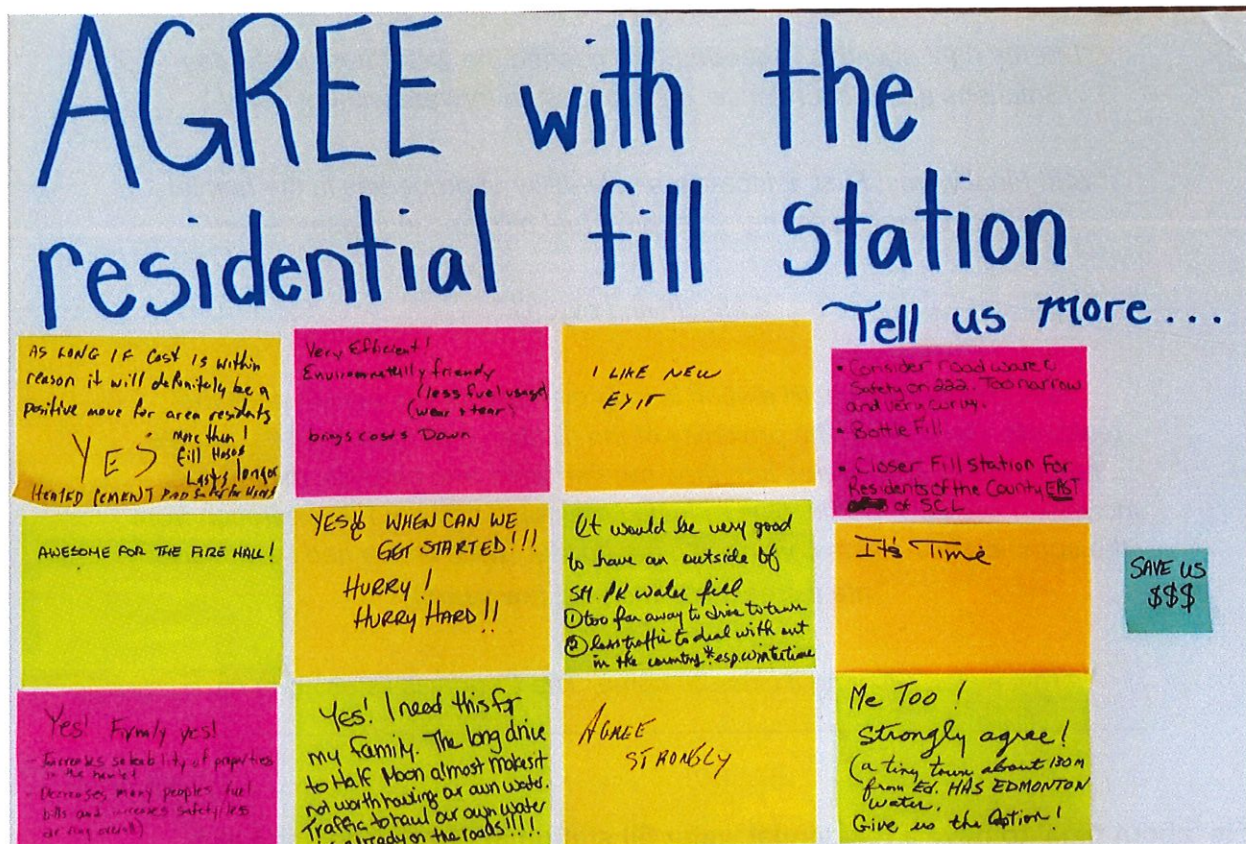 AGREE with the
residential fill station
Tell us more...
AS LONG IF Cost IS within
reason it will definitely be a
positive move for area residents
YES
more then 1
fill Hoses
Lasts longer
HEATED CEMENT PAD Safer for Users
Very Efficient!
Environmentally friendly
(less fuel usage)
(wear & tear)
brings costs Down
I LIKE NEW
EXIT
• Consider road ware &
Safety on 222. Too narrow
and very curvy.
• Bottle Fill
• Closer Fill station For
Residents of the County EAST
of SCL
AWESOME FOR THE FIRE HALL!
YES!! WHEN CAN WE
GET STARTED!!!
HURRY!
HURRY HARD!!
It would be very good
to have an outside of
SH. PK water fill
① too far away to drive to town
② less traffic to deal with out
in the country *esp. wintertime
It's Time
SAVE US
$$$
Yes! Firmly yes!
- Increases saleability of properties
in the hamlet
- Decreases many peoples fuel
bills and increases safety (less
driving overall)
Yes! I need this for
my family. The long drive
to Half Moon almost makes it
not worth having our own water.
Traffic to haul our own water
already on the roads!!!!
AGREE
STRONGLY
Me Too!
Strongly agree!
(a tiny town about 130 m
from Ed. HAS EDMONTON
water.
Give us the Option!